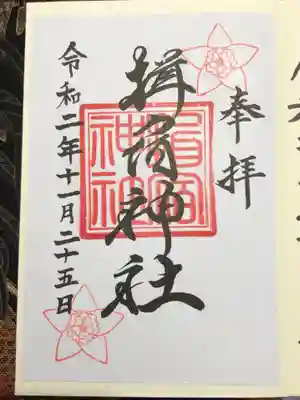 奉拝
揖宿神社
令和二年十一月二十五日